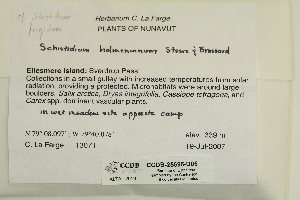 cf Schistidium
frigidum
Herbarium C. La Farge
PLANTS OF NUNAVUT
Schistidium holmenianum Steere & Brassard
Ellesmere Island: Sverdrup Pass
Collections in a small gulley with increased temperatures from solar
radiation, providing a protected. Microhabitats were around large
boulders. Salix arctica, Dryas integrifolia, Cassiope tetragona, and
Carex spp. dominant vascular plants.
in wet meadow site opposite camp
elev. 339 m
C. La Farge 13071 19-Jul-2007
CCDB